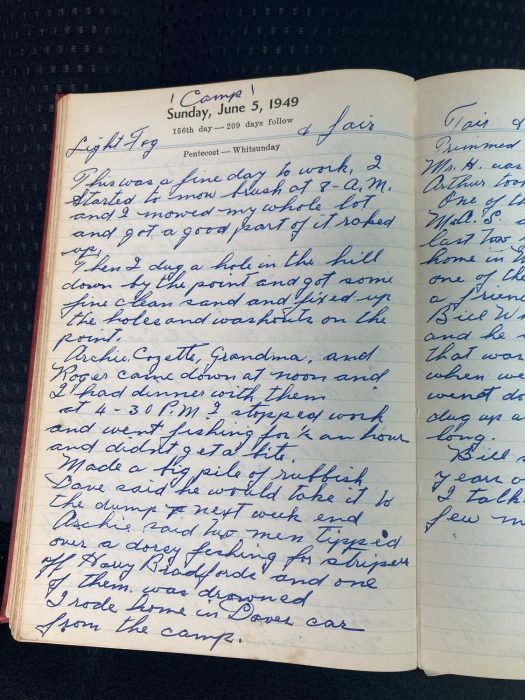 ! Camp !
Sunday, June 5, 1949
156th day — 209 days follow
Light Fog & fair
Pentecost — Whitsunday
This was a fine day to work, I
started to mow brush at 8-A.M.
and I mowed my whole lot
and got a good part of it raked
up.
Then I dug a hole in the hill
down by the point and got some
fine clean sand and fixed up
the holes and washouts on the
point.
Archie, Cozette, Grandma, and
Roger came down at noon and
I had dinner with them
at 4-30 P.M. I stopped work
and went fishing for ½ an hour
and didnt get a bite.
Made a big pile of rubbish
Dave said he would take it to
the dump next week end
Archie said two men tipped
over a dorey fishing for stripers
off Harry Bradfords and one
of them was drowned
I rode home in Daves car
from the camp.
Fair &
Trimmed
Mr. H. was
Arthur too
One of th
last two
home in
one of the
a frien
Bill W
and he
that was
when we
went do
dug up a
long.
Bill
years o
I talk
few m